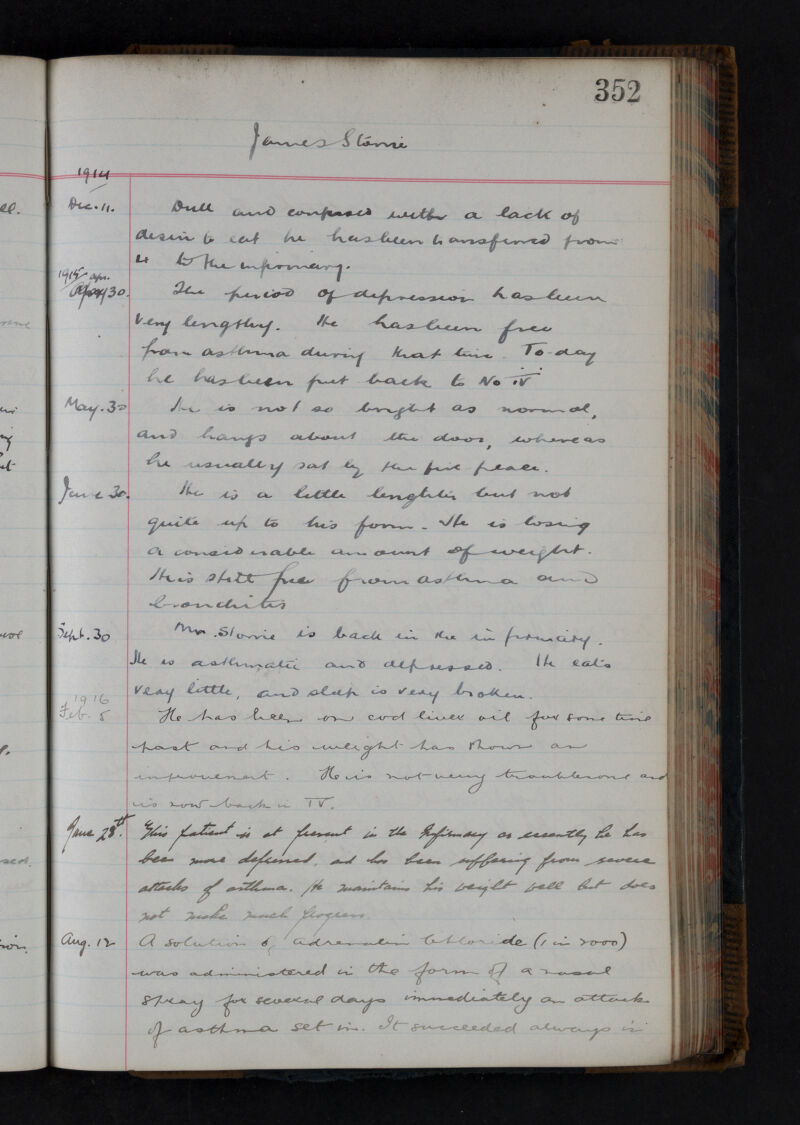 352
James Storrie
1914
Dec. 11. Dull and confused with a lack of
desire to eat he has been transferred from
to the infirmary.
1915 Apr. 30. The period of depression has been
very lengthy. He has been free
from asthma during that time. To-day
he has been put back to No IV
May. 30 He is not so bright as normal,
and hangs about the door, whereas
he usually sat by the fire place.
June 30. He is a little brighter but not
quite up to his form. He is losing
a considerable amount of weight.
He is still free from asthma and
bronchitis
Sept. 30 Mr. Storrie is back in the infirmary.
He is asthmatic and depressed. He eats
very little, and sleep is very broken.
1916
Feb. 5 He has been on cod liver oil for some time
past and his weight has shown an
improvement. He is not very troublesome and
is now back in IV.
June 28th. This patient is at present in the Infirmary as recently he has
been more depressed, and has been suffering from severe
attacks of asthma. He maintains his weight well but does
not make much progress.
Aug. 12 A solution of adrenalin chloride (1 in 2000)
was administered in the form of a nasal
spray for several days immediately an attack
of asthma set in. It succeeded always in